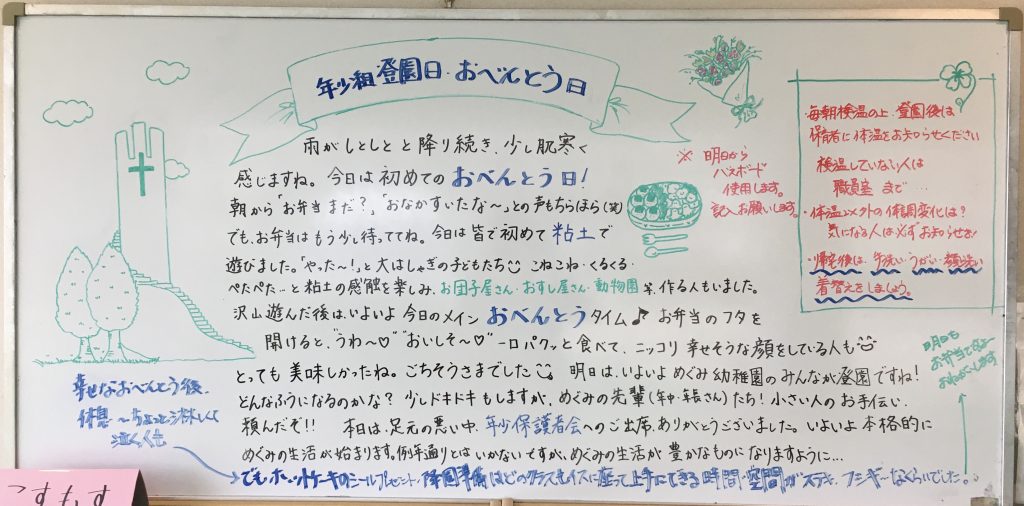 年少組 登園日・おべんとう日
雨がしとしとと降り続き、少し肌寒く
感じますね。今日は初めてのおべんとう日!
朝から「お弁当まだ?」「おなかすいたな〜」との声もちらほら(笑)
でも、お弁当はもう少し待っててね。今日は皆で初めて粘土で
遊びました。「やった〜!」と大はしゃぎの子どもたち こねこね・くるくる・
ぺたぺた…と粘土の感触を楽しみ、お団子屋さん・おすし屋さん・動物園 等、作る人もいました。
沢山遊んだ後は、いよいよ今日のメイン おべんとうタイム♪ お弁当のフタを
開けると、"うわ〜♡" "おいしそ〜♡" 一口パクッと食べて、ニッコリ 幸せそうな顔をしている人も
とっても美味しかったね。ごちそうさまでした 明日は、いよいよめぐみ幼稚園のみんなが登園ですね!
どんなふうになるのかな? 少しドキドキもしますが、めぐみの先輩(年中・年長さん)たち! 小さい人のお手伝い、
頼んだぞ!! 本日は、足元の悪い中、年少保護者会へのご出席、ありがとうございました。いよいよ本格的に
めぐみの生活が始まります。例年通りとはいかないですが、めぐみの生活が豊かなものになりますように…
幸せなおべんとう後、
休息〜ちょっと淋しくて
でもホットケーキのシールプレゼント・降園準備はどのクラスもイスに座って上手にできる時間・空間がステキ
※ 明日から
バスボード
使用します。
記入お願いします。
・毎朝検温の上、登園後は
保育者に体温をお知らせください
検温していない人は
職員室まで…
・体温以外の体調変化は?
気になる人は必ずお知らせを!
・帰宅後は、手洗い・うがい・顔洗い
着替えをしましょう。
明日も
お弁当ですよ〜
おねがいします
こすもす